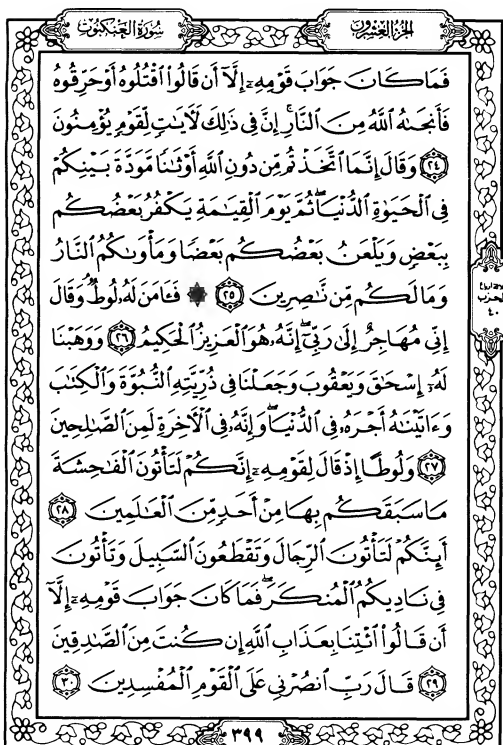 الجزء العشرون
سورة العنكبوت
فَمَا كَانَ جَوَابَ قَوْمِهِۦٓ إِلَّآ أَن قَالُوا۟ ٱقْتُلُوهُ أَوْ حَرِّقُوهُ
فَأَنجَىٰهُ ٱللَّهُ مِنَ ٱلنَّارِ ۚ إِنَّ فِى ذَٰلِكَ لَـَٔايَـٰتٍ لِّقَوْمٍ يُؤْمِنُونَ
﴿٢٤﴾ وَقَالَ إِنَّمَا ٱتَّخَذْتُم مِّن دُونِ ٱللَّهِ أَوْثَـٰنًا مَّوَدَّةَ بَيْنِكُمْ
فِى ٱلْحَيَوٰةِ ٱلدُّنْيَا ۖ ثُمَّ يَوْمَ ٱلْقِيَـٰمَةِ يَكْفُرُ بَعْضُكُم
بِبَعْضٍ وَيَلْعَنُ بَعْضُكُم بَعْضًا وَمَأْوَىٰكُمُ ٱلنَّارُ
وَمَا لَكُم مِّن نَّـٰصِرِينَ ﴿٢٥﴾ ۞ فَـَٔامَنَ لَهُۥ لُوطٌ ۘ وَقَالَ
إِنِّى مُهَاجِرٌ إِلَىٰ رَبِّىٓ ۖ إِنَّهُۥ هُوَ ٱلْعَزِيزُ ٱلْحَكِيمُ ﴿٢٦﴾ وَوَهَبْنَا
لَهُۥٓ إِسْحَـٰقَ وَيَعْقُوبَ وَجَعَلْنَا فِى ذُرِّيَّتِهِ ٱلنُّبُوَّةَ وَٱلْكِتَـٰبَ
وَءَاتَيْنَـٰهُ أَجْرَهُۥ فِى ٱلدُّنْيَا ۖ وَإِنَّهُۥ فِى ٱلْـَٔاخِرَةِ لَمِنَ ٱلصَّـٰلِحِينَ
﴿٢٧﴾ وَلُوطًا إِذْ قَالَ لِقَوْمِهِۦٓ إِنَّكُمْ لَتَأْتُونَ ٱلْفَـٰحِشَةَ
مَا سَبَقَكُم بِهَا مِنْ أَحَدٍ مِّنَ ٱلْعَـٰلَمِينَ ﴿٢٨﴾
أَئِنَّكُمْ لَتَأْتُونَ ٱلرِّجَالَ وَتَقْطَعُونَ ٱلسَّبِيلَ وَتَأْتُونَ
فِى نَادِيكُمُ ٱلْمُنكَرَ ۖ فَمَا كَانَ جَوَابَ قَوْمِهِۦٓ إِلَّآ
أَن قَالُوا۟ ٱئْتِنَا بِعَذَابِ ٱللَّهِ إِن كُنتَ مِنَ ٱلصَّـٰدِقِينَ
﴿٢٩﴾ قَالَ رَبِّ ٱنصُرْنِى عَلَى ٱلْقَوْمِ ٱلْمُفْسِدِينَ ﴿٣٠﴾
الحزب
٤٠
٣٩٩